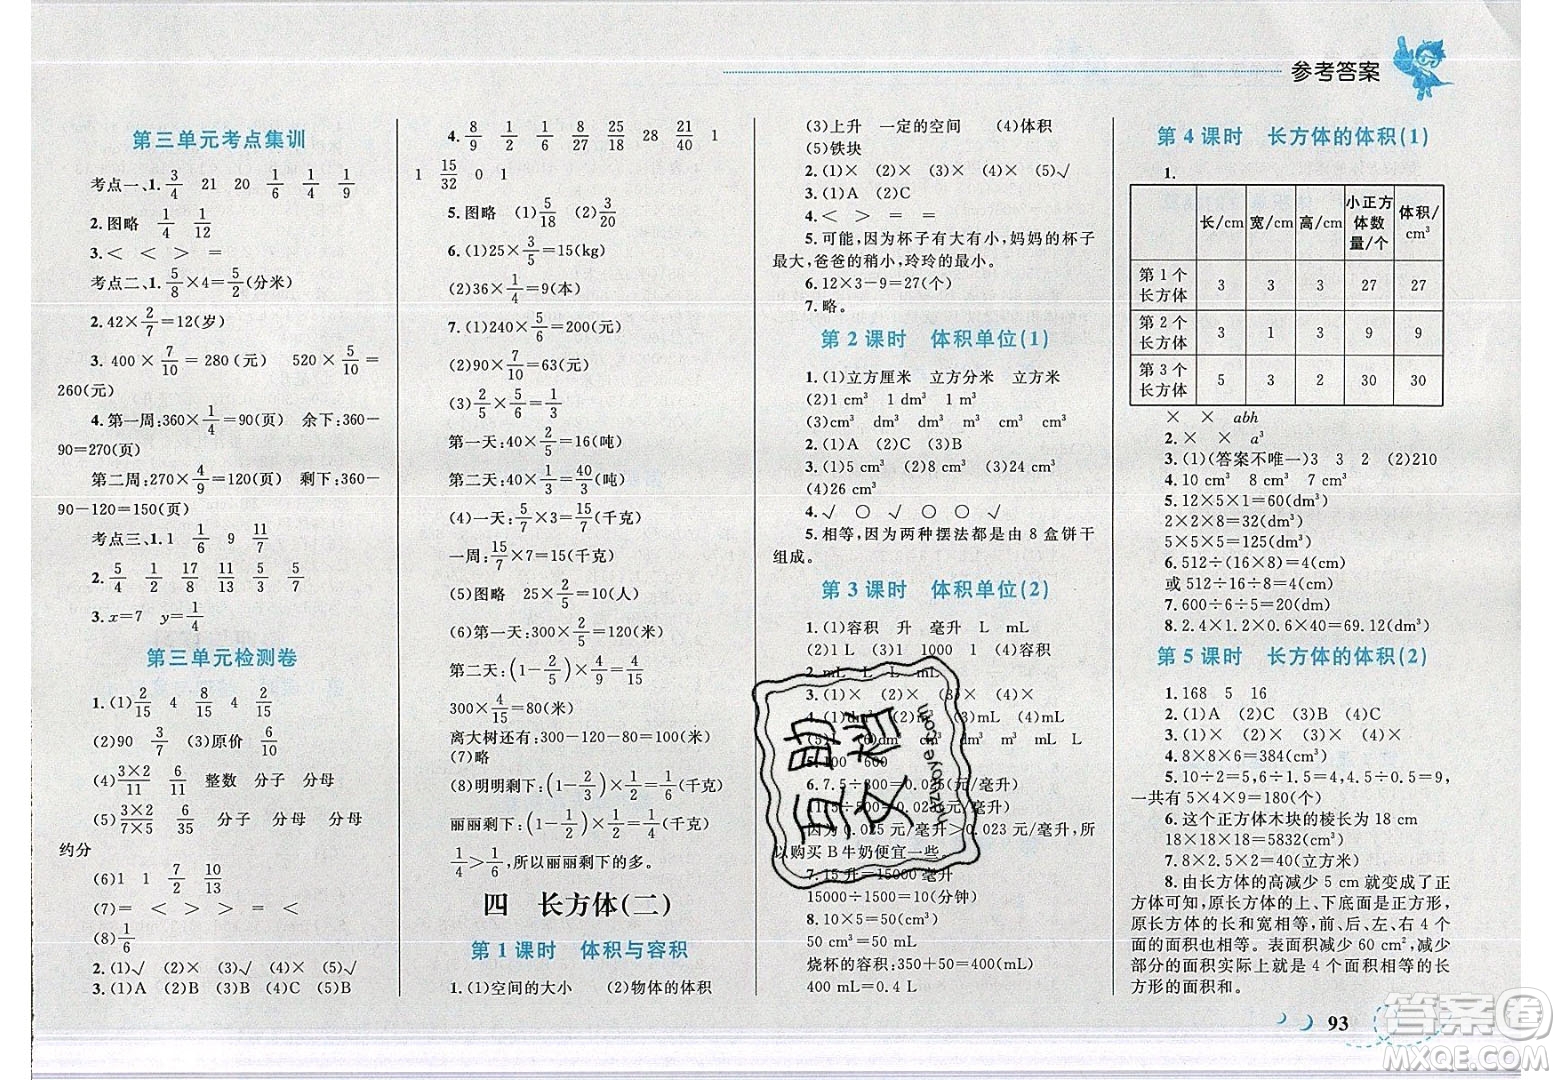 参考答案
第三单元考点集训
考点一、1. 3/4 21 20 1/6 1/4 1/9
2.图略 1/4 1/12
3.< < > =
考点二、1. 5/8×4=5/2(分米)
2. 42×2/7=12(岁)
3. 400×7/10=280(元) 520×5/10=
260(元)
4.第一周:360×1/4=90(页) 余下:360-
90=270(页)
第二周:270×4/9=120(页) 剩下:360-
90-120=150(页)
考点三、1. 1 1/6 9 11/7
2. 5/4 1/12 17/8 11/18 13/5
3. x=7 y=1/4
第三单元检测卷
1.(1)2/15 4 8/15 4 2/15
(2)90 3/7 (3)原价 6/10
(4)3×2/11 6/11 整数 分子 分母
(5)3×2/7×5 6/35 分子 分母
约分
(6)1 1 7/2 10/13
(7)= < > <
(8)1/6
2.(1)√ (2)× (3)× (4)√ (5)√
3.(1)A (2)C (3)B (4)C (5)B
4. 8/9 1/2 8/27 18/25 28 21/40 1
1 15/32 0 1
5.图略 (1)5/18 (2)3/20
6.(1)25×3/5=15(kg)
(2)36×1/4=9(本)
7.(1)240×5/6=200(元)
(2)90×7/10=63(元)
(3)2/5×5/6=1/3
第一天:40×2/5=16(吨)
第二天:40×1/3=40/3(吨)
(4)一天:5/7×3=15/7(千克)
一周:15/7×7=15(千克)
(5)图略 25×2/5=10(人)
(6)第一天:300×2/5=120(米)
第二天:(1-2/5)×4/9=4/15
300×4/15=80(米)
离大树还有:300-120-80=100(米)
(7)略
(8)明明剩下:(1-2/3)×3/4=1/4(千克)
丽丽剩下:(1-1/2)×2/3=1/3(千克)
1/4>1/6,所以丽丽剩下的多。
四 长方体(二)
第1课时 体积与容积
1.(1)空间的大小 (2)物体的体积
(3)上升 一定的空间 (4)体积
(5)铁块
2.(1)× (2)× (3)× (4)× (5)√
3.(1)A (2)C
4.< > = =
5.可能,因为杯子有大有小,妈妈的杯子
最大,爸爸的稍小,玲玲的最小。
6. 12×3-9=27(个)
7.略。
第2课时 体积单位(1)
1.(1)立方厘米 立方分米 立方米
(2)1 cm³ 1 dm³ 1 m³
(3)cm³ dm³ m³ cm³ dm³
2.(1)A (2)C
3.(1)5 cm³ (2)9 cm³ (3)24 cm³
(4)26 cm³
4.√ ○ ○ ○ √
5.相等,因为两种摆法都是由8盒饼干
组成。
第3课时 体积单位(2)
1.(1)容积 升 毫升 L mL
(2)1 L 1 1000 1 (4)容积
2. mL L L mL
3.(1)× (2)× (3)× (4)×
4.(1)dm³ (2)m³ (3)mL (4)mL
(5)L (6)dm cm dm³ m³ mL
5. 100 600
6. 7.5÷300=0.025(元/毫升)
11.5÷500=0.023(元/毫升)
因为0.025元/毫升>0.023元/毫升,所
以购买B牛奶便宜一些。
7. 15升=15000毫升
15000÷1500=10(分钟)
8. 10×5=50(cm³)
50 cm³=50 mL
烧杯的容积:350+50=400(mL)
400 mL=0.4 L
第4课时 长方体的体积(1)
1.
长/cm 宽/cm 高/cm 小正方体数量/个 体积/cm³
第1个长方体 3 3 3 27 27
第2个长方体 3 1 3 9 9
第3个长方体 5 3 2 30 30
× × abh
2.× × a³
3.(1)(答案不唯一)3 3 2 (2)210
4. 10 cm³ 8 cm³ 7 cm³
5. 12×5×1=60(dm³)
2×2×8=32(dm³)
5×5×5=125(dm³)
6. 512÷(16×8)=4(cm)
或512÷16÷8=4(cm)
7. 600÷6÷5=20(cm)
8. 2.4×1.2×24=69.12(dm³)
第5课时 长方体的体积(2)
1. 168 5 16
2.(1)A (2)C (3)B (4)C
3.(1)√ (2)× (3)× (4)×
4. 8×8×6=384(cm²)
5. 10÷2=5,6÷1.5=4,18÷2=9,
一共有5×4×9=180(个)
6.这个正方体木块的棱长为18 cm
18×18×18=5832(cm³)
7. 8×2.5×2=40(立方米)
8.由长方体的高减少5 cm就变成了正
方体可知,原长方体的上、下底面是正方形,
原长方体的长和宽相等,前、后、左、右4个
面的面积也相等。表面积减少60 cm²,减少
部分的面积实际上就是4个面积相等的长
方形的面积和。
作业精灵
huzuoye.com
93
答案圈
MXQE.COM